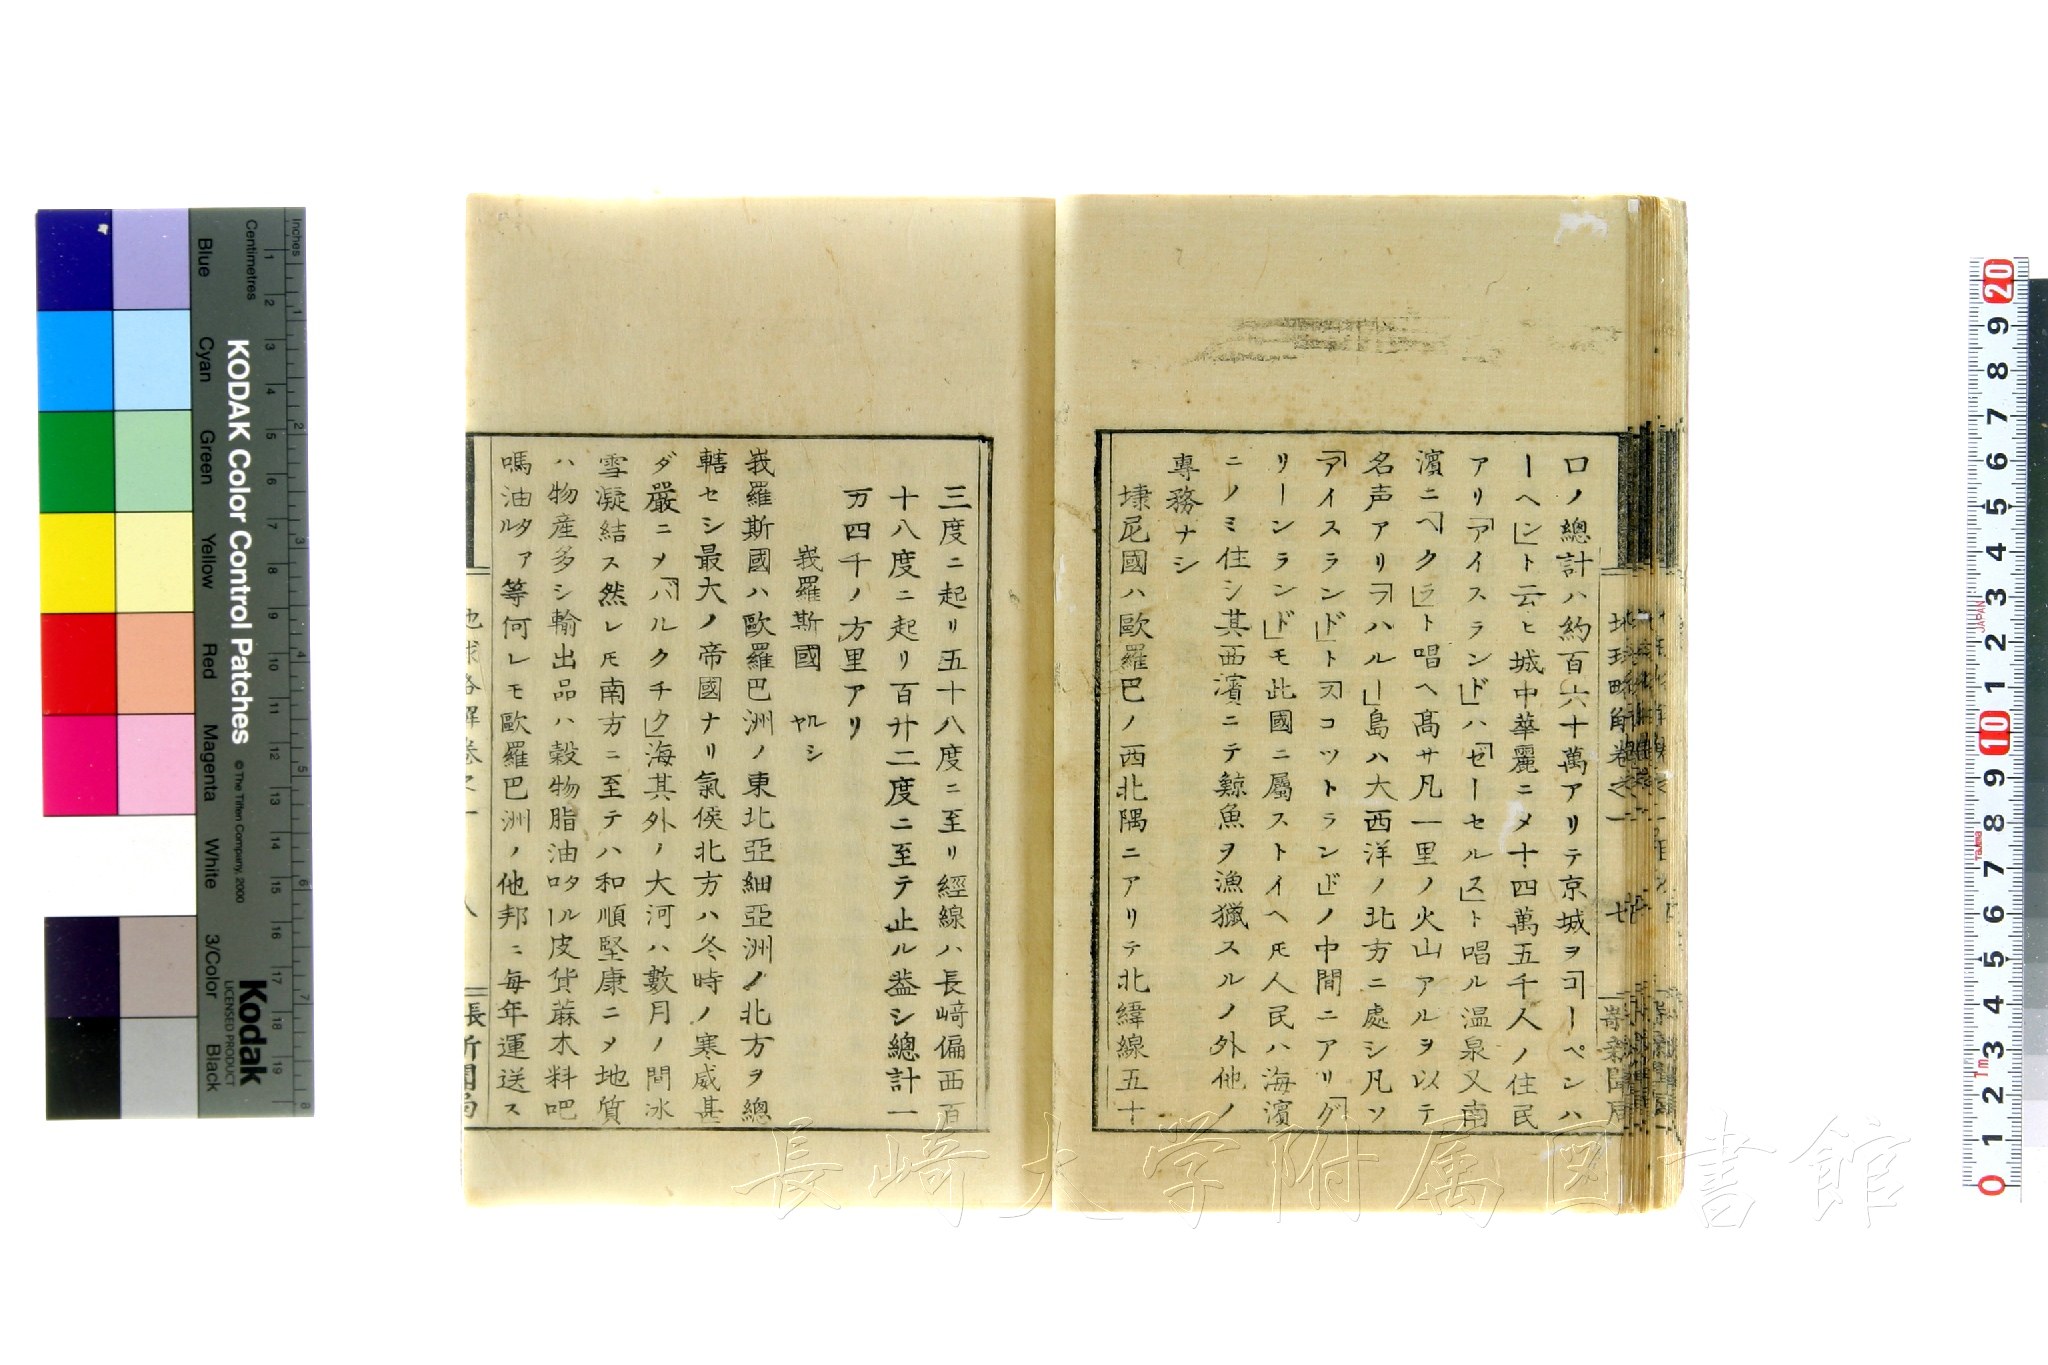 口ノ總計ハ約百六十萬アリテ京城ヲ「コーペンハ
ーヘン」ト云ヒ城中華麗ニメ十四萬五千人ノ住民
アリ「アイスランド」ハ「ゼーセルス」ト唱ル温泉又南
濱ニ「ヘクラ」ト唱ヘ髙サ凡一里ノ火山アルヲ以テ
名声アリ「フハル」島ハ大西洋ノ北方ニ處シ凡ソ
「アイスランド」ト「スコットランド」ノ中間ニアリ「グ
リーンランド」モ此國ニ屬ストイヘ𪜈人民ハ海濱
ニノミ住シ其西濱ニテ鯨魚ヲ漁獵スルノ外他ノ
專務ナシ
㻿尼國ハ歐羅巴ノ西北隅ニアリテ北緯線五十
三度ニ起リ五十八度ニ至リ經線ハ長﨑偏西百
十八度ニ起リ百廿二度ニ至テ止ル葢シ總計一
万四千ノ方里アリ
峩羅斯國 ヤルシ
峩羅斯國ハ歐羅巴洲ノ東北亞細亞洲ノ北方ヲ總
轄セシ最大ノ帝國ナリ氣侯北方ハ冬時ノ寒威甚
ダ嚴ニメ「バルクチク」海其外ノ大河ハ數月ノ間冰
雪凝結ス然レ𪜈南方ニ至テハ和順堅康ニメ地質
ハ物産多シ輸出品ハ穀物脂油タールロ皮貨蔴木料吧
嗎油タルア等何レモ歐羅巴洲ノ他邦ニ每年運送ス
地球略解卷之一
七
﨑新聞局
地球略解卷之一
八
長﨑新聞局
KODAK Color Control Patches
© The Tiffen Company, 2000
Kodak
LICENSED PRODUCT
Inches
Centimetres
Blue
Cyan
Green
Yellow
Red
Magenta
White
3/Color
Black
1 2 3 4 5 6 7 8 9 10 11 12 13 14 15 16 17 18 19
1 2 3 4 5 6 7 8
20 9 8 7 6 5 4 3 2 1 10 9 8 7 6 5 4 3 2 1 0
JAPAN
TAJIMA
1m
長崎大学附属図書館